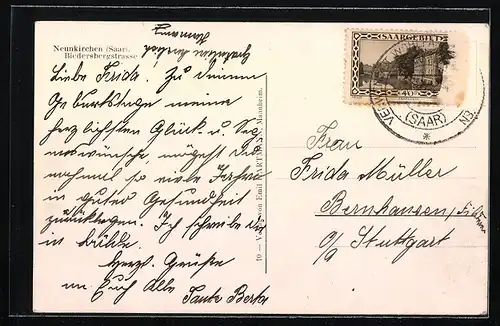 Neunkirchen (Saar).
Biedersbergstrasse
Liebe Frida. Zu Deinem
Geburtstage meine
herzlichsten Glück- u. Seg-
nswünsche, mögest Du
nochmal so viele Jahre
in guter Gesundheit
zurücklegen. Ich schreibe Dir
in Bälde.
Herzl. Grüße
an Euch Alle
Tante Berta
10 – Verlag von Emil HARTMANN, Mannheim.
SAARGEBIET
40
(SAAR)
Frau
Frida Müller
Bernhausen
o/a Stuttgart